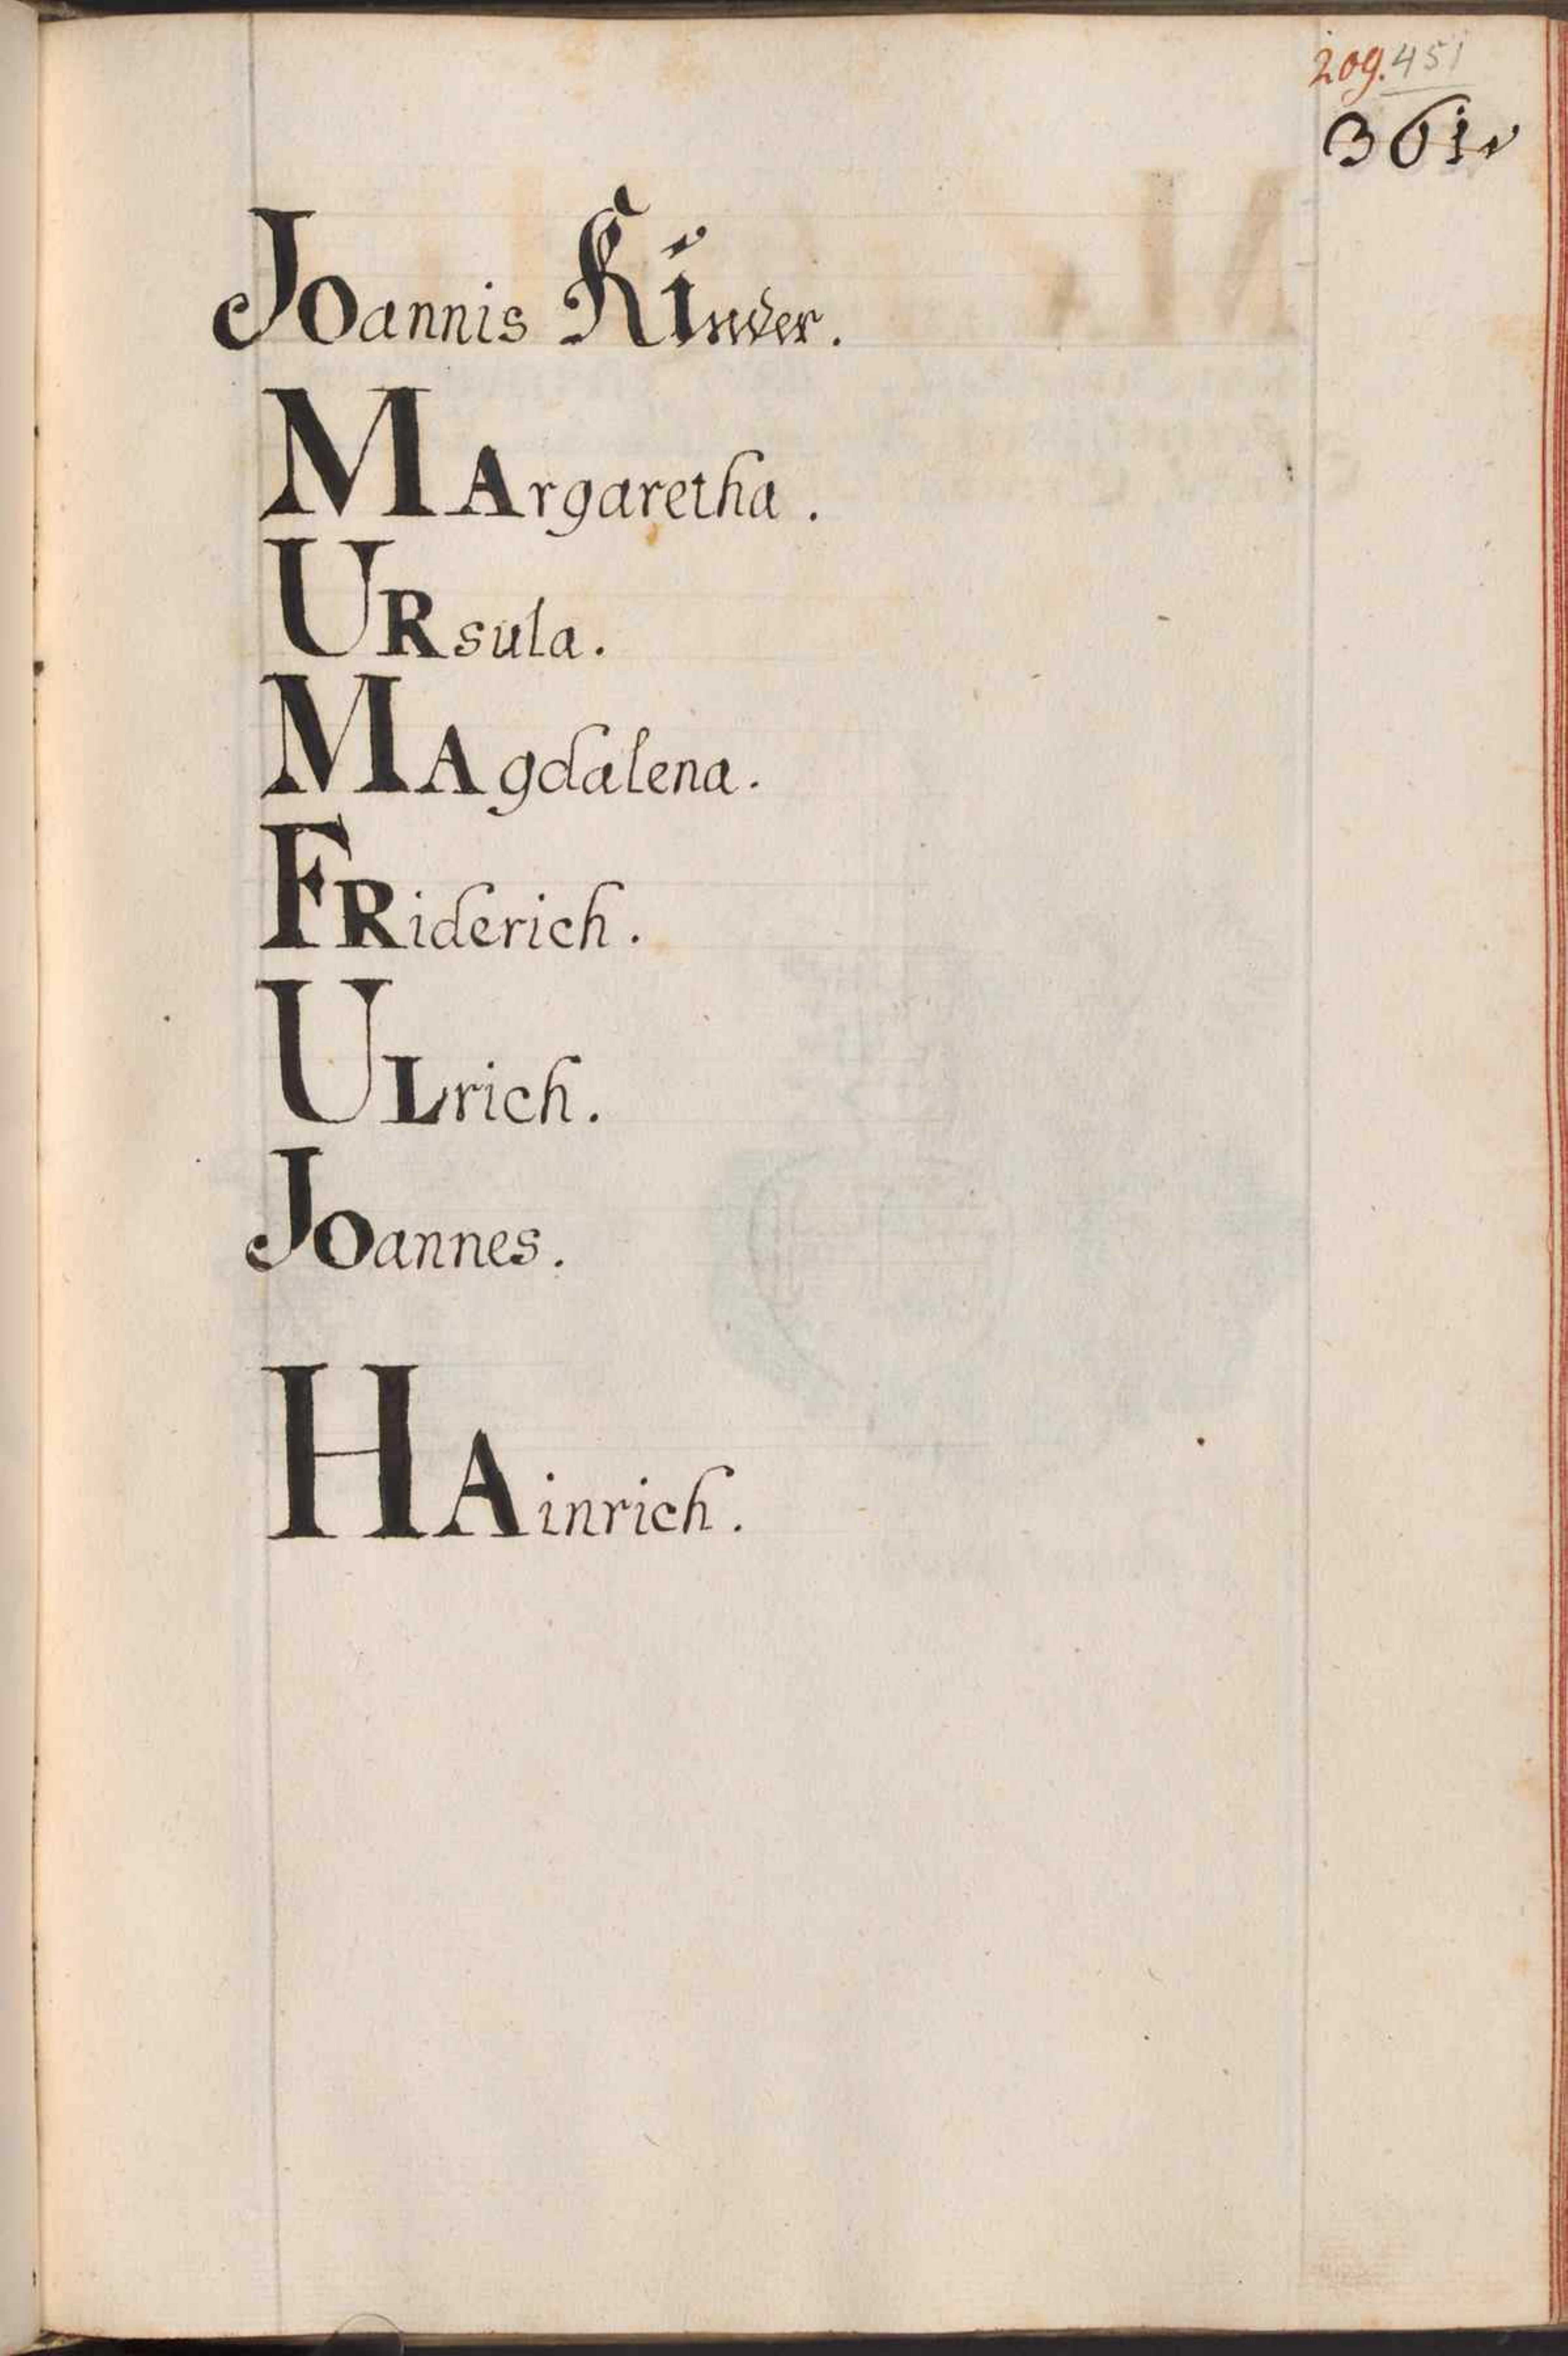 209. 451
361
Joannis Kinder.
MArgaretha.
URsula.
MAgdalena.
FRiderich.
ULrich.
Joannes.
HAinrich.